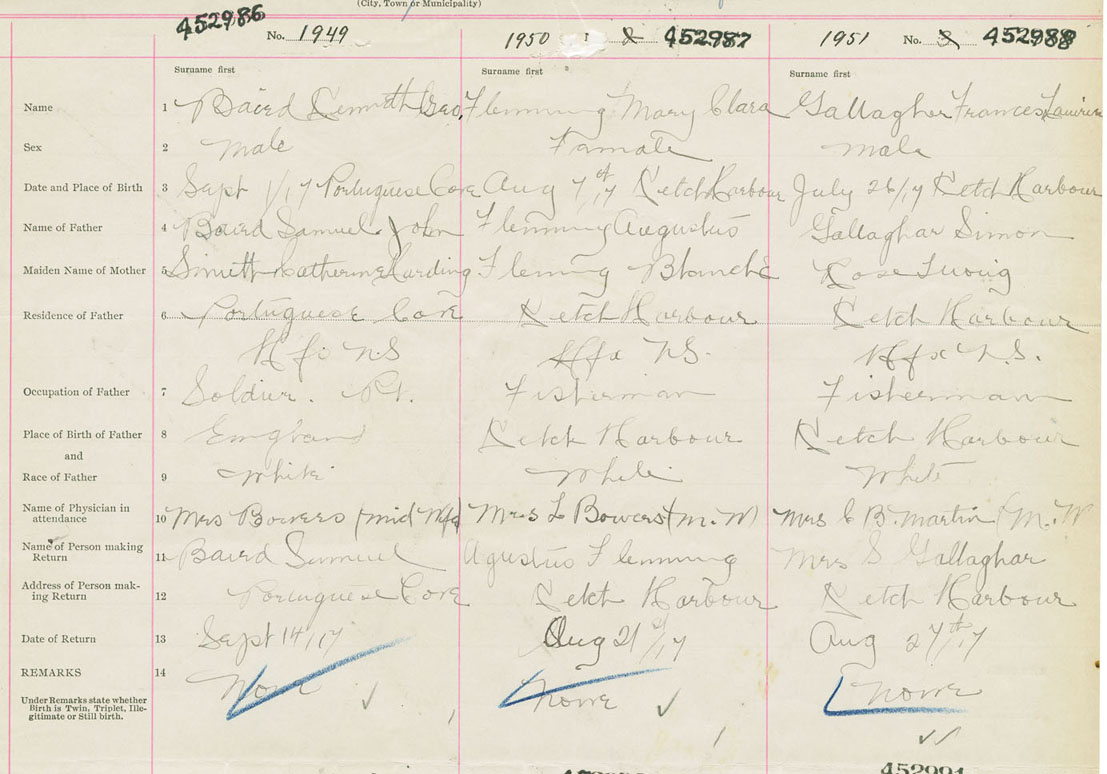 (City, Town or Municipality)
452986 452987 452988
No. 1949 1950 1951 No.
Surname first Surname first Surname first
Name 1 Baird Kennith Geo. Flemming Mary Clara Gallagher Frances
Sex 2 Male Famale Male
Date and Place of Birth 3 Sept 1/17 Portuguese Cove Aug 7th/17 Ketch Harbour July 26/17 Ketch Harbour
Name of Father 4 Baird Samuel John Flemming Augustus Gallaghar Simon
Maiden Name of Mother 5 Katherine Harding Fleming Blanche Rose
Residence of Father 6 Portuguese Cove Ketch Harbour Ketch Harbour
Hfx NS Hfx N.S. Hfx N.S.
Occupation of Father 7 Soldier. Fisherman Fishermann
Place of Birth of Father 8 England Ketch Harbour Ketch Harbour
and
Race of Father 9 White White White
Name of Physician in
attendance 10 Mrs Bowers (mid Mrs L Bowers (M. W) Mrs B. Martin (M. W
Name of Person making
Return 11 Baird Samuel Agustus Flemming Mrs S Gallaghar
Address of Person mak-
ing Return 12 Portuguese Cove Ketch Harbour Ketch Harbour
Date of Return 13 Sept 14/17 Aug 21/17 Aug 27th/17
REMARKS 14 None None None
Under Remarks state whether
Birth is Twin, Triplet, Ille-
gitimate or Still birth.
452991